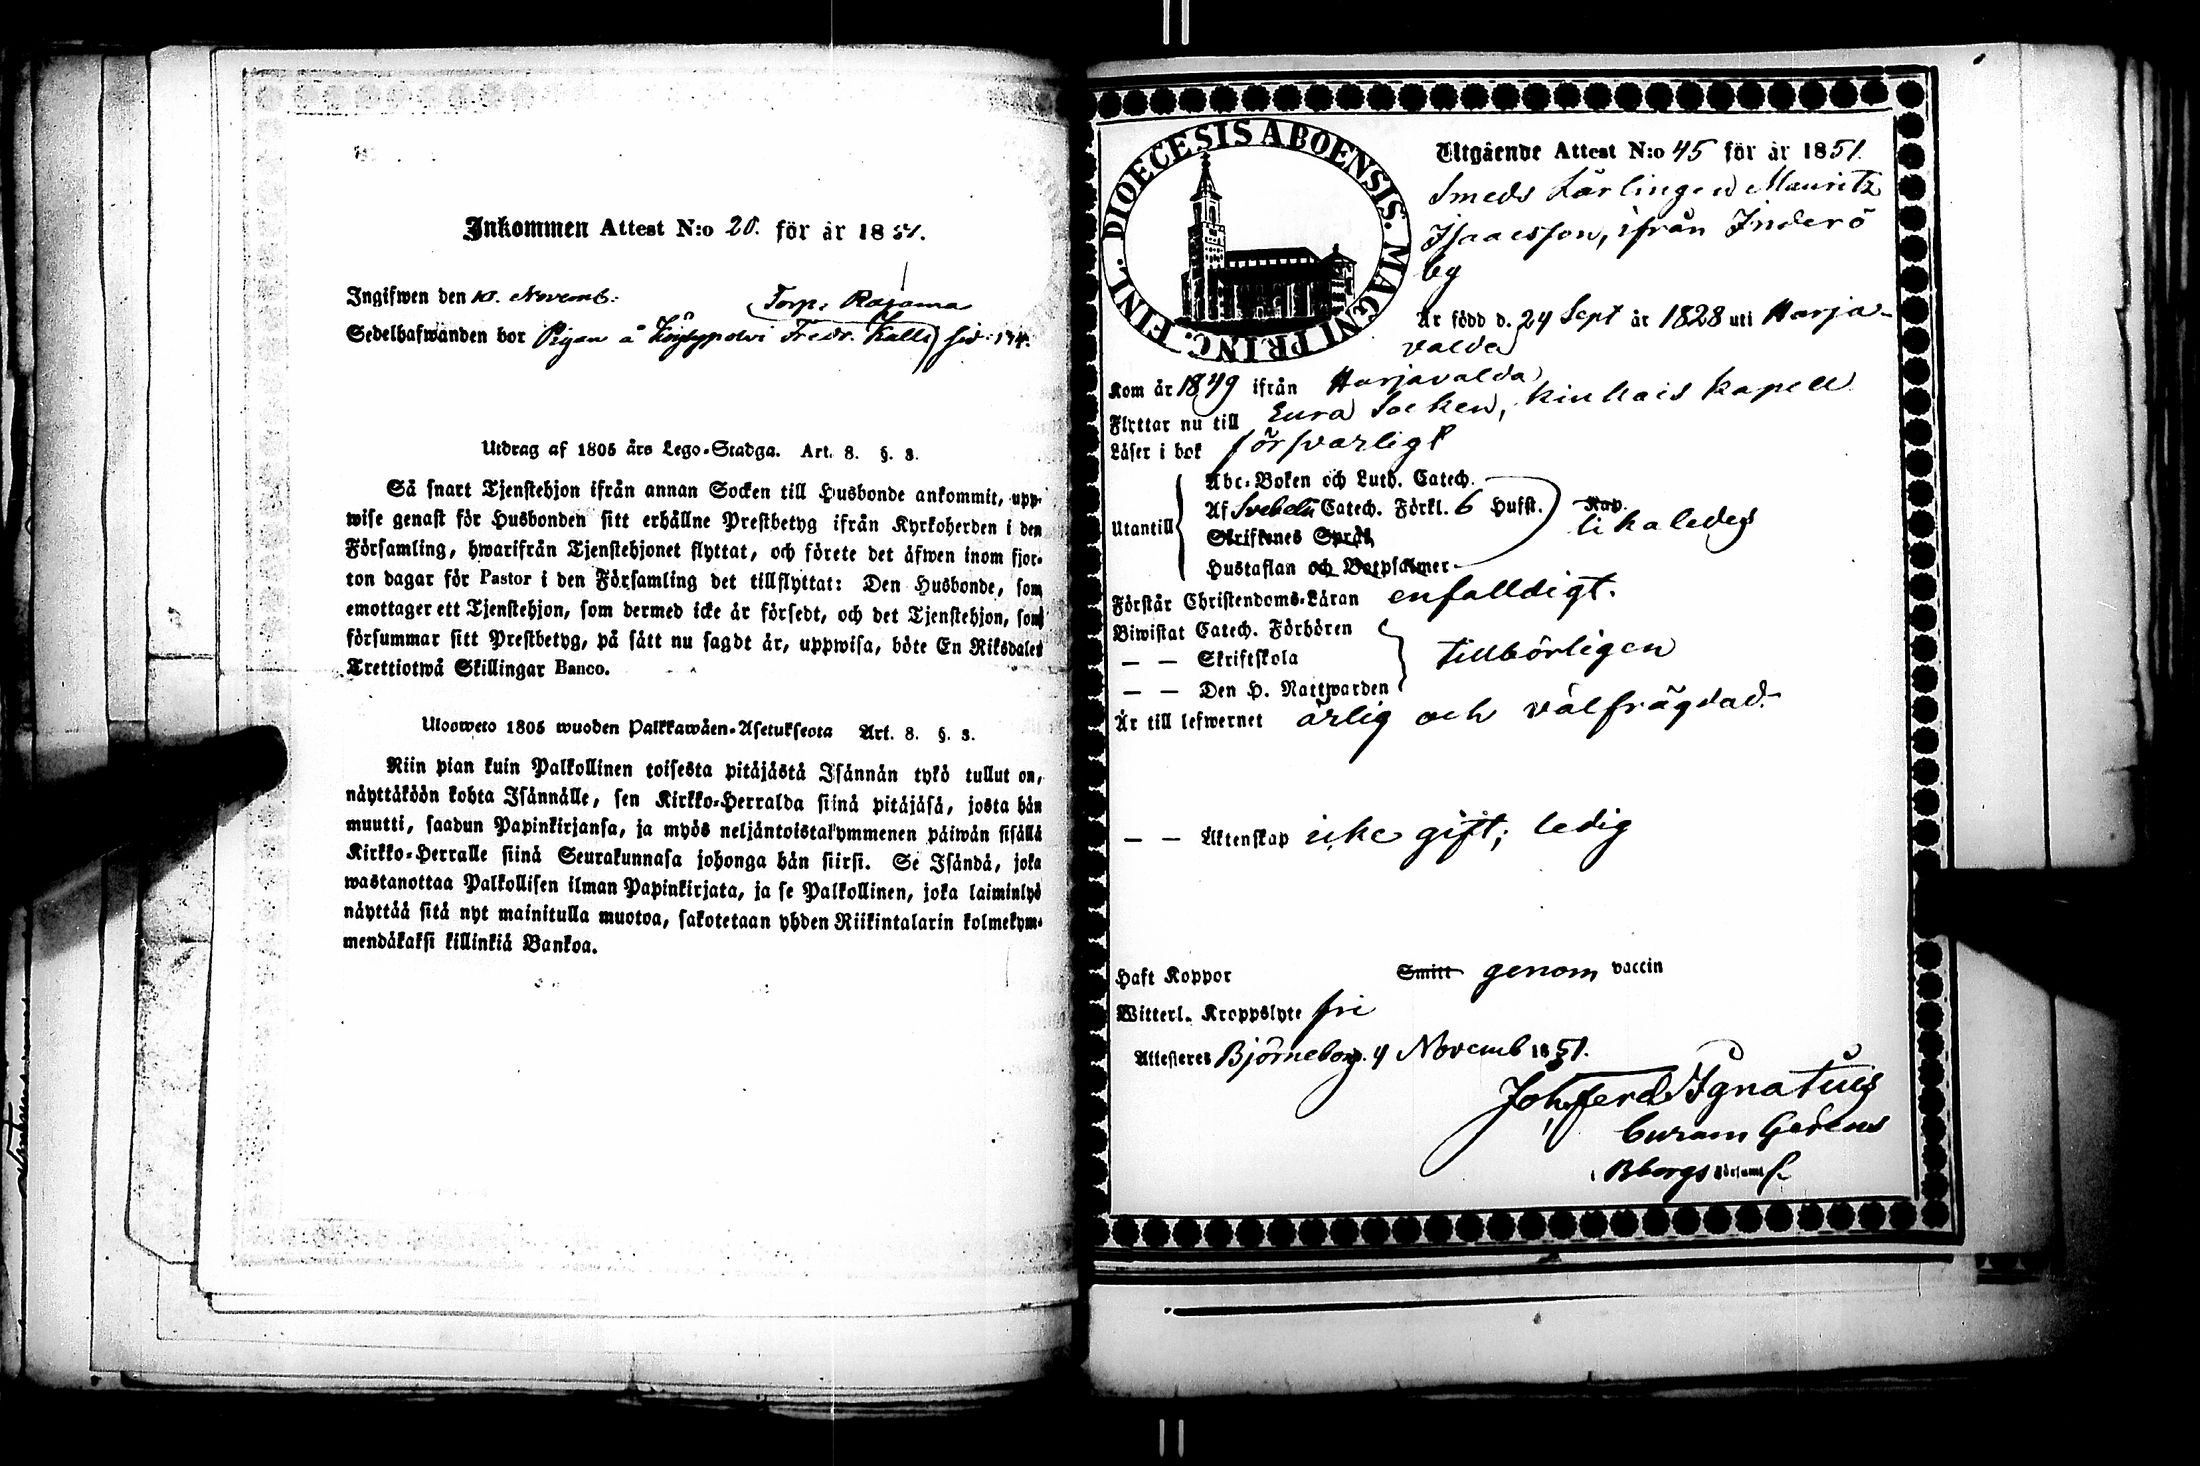 Inkommen Attest N:o 20. för år 1851.
Ingifwen den 10. Novemb:
Torp: Rajama
Sedelhafwanden bor Pigan å Fredr. Kalle) sid: 174.
Utdrag af 1805 års Lego-Stadga. Art. 8. §. 3.
Så snart Tjenstehjon ifrån annan Socken till Husbonde ankommit, upp-
wise genast för Husbonden sitt erhållne Prestbetyg ifrån Kyrkoherden i den
Församling, hwarifrån Tjenstehjonet flyttat, och förete det äfwen inom fjor-
ton dagar för Pastor i den Församling det tillflyttat: Den Husbonde, som
emottager ett Tjenstehjon, som dermed icke är försedt, och det Tjenstehjon, som
försummar sitt Prestbetyg, på sätt nu sagdt är, uppwisa, böte En Riksdaler
Trettiotwå Skillingar Banco.
Ulosweto 1805 wuoden Palkkawäen-Asetuksesta Art. 8. §. 3.
Niin pian kuin Palkollinen toisesta pitäjästä Isännän tykö tullut on,
näyttäköön kohta Isännälle, sen Kirkko-Herralda siinä pitäjäsä, josta hän
muutti, saadun Papinkirjansa, ja myös neljäntoistakymmenen päiwän sisällä
Kirkko-Herralle siinä Seurakunnasa johonga hän siirsi. Se Isändä, joka
wastanottaa Palkollisen ilman Papinkirjata, ja se Palkollinen, joka laiminlyö
näyttää sitä nyt mainitulla muotoa, sakotetaan yhden Riikintalarin kolmekym-
mendäkaksi killinkiä Bankoa.
DIOECESIS ABOENSIS. MAGNI PRINC. FINL.
Utgående Attest N:o 45 för år 1851.
Smeds Lärlingen Mauritz
Isaacsson, ifrån Inderö
by
Är född d. 24 Sept år 1828 uti Harja-
valda
Kom år 1849 ifrån Harjavalda
Flyttar nu till Eura Socken, Kiukais Kapell
Läser i bok försvarligt
Utantill
Abc-Boken och Luth. Catech.
Af Svebelii Catech. Förkl. 6 Hufst. Kap.
likaledes
Skriftenes Språk
Hustaflan och Botpsalmer
Förstår Christendoms-Läran enfalldigt.
Biwistat Catech. Förhören
— — Skriftskola tillbörligen
— — Den H. Nattwarden
Är till lefwernet ärlig och välfrägdad.
— — Äktenskap icke gift; ledig
Haft Koppor Smitt genom vaccin
Witterl. Kroppslyte fri
Attesteres Björneborg. 4 Novemb 1851.
Joh. Ferd. Ignatius
Curam Gerens
i Bborgs Församl.